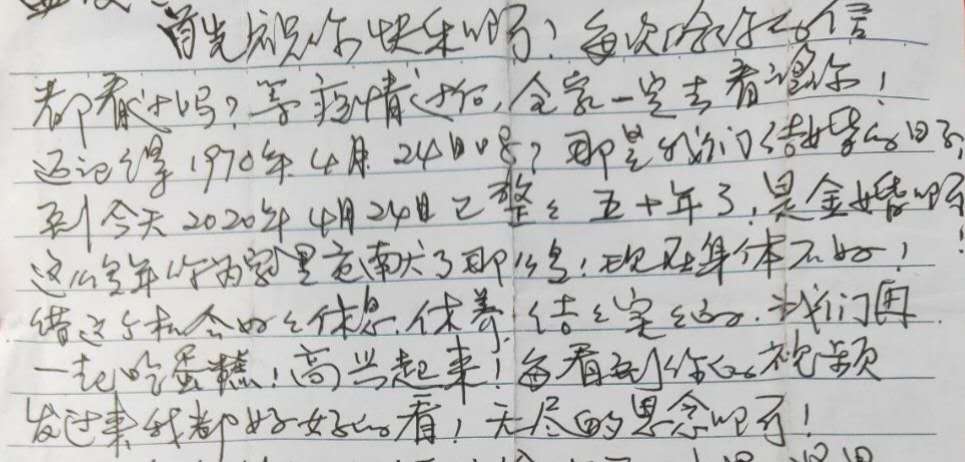 首先祝你快乐啊！每次给你的信
都看过吗？等疫情过后，全家一定去看望你！
还记得1970年4月24日吗？那是我们结婚的日子，
到今天2020年4月24日已整整五十年了，是金婚啊！
这么多年你为家里贡献了那么多！现在身体不好！
借这个机会好好休息、休养，结结实实的。我们再
一起吃蛋糕！高兴起来！每看到你的视频
发过来我都好好的看！无尽的思念啊！